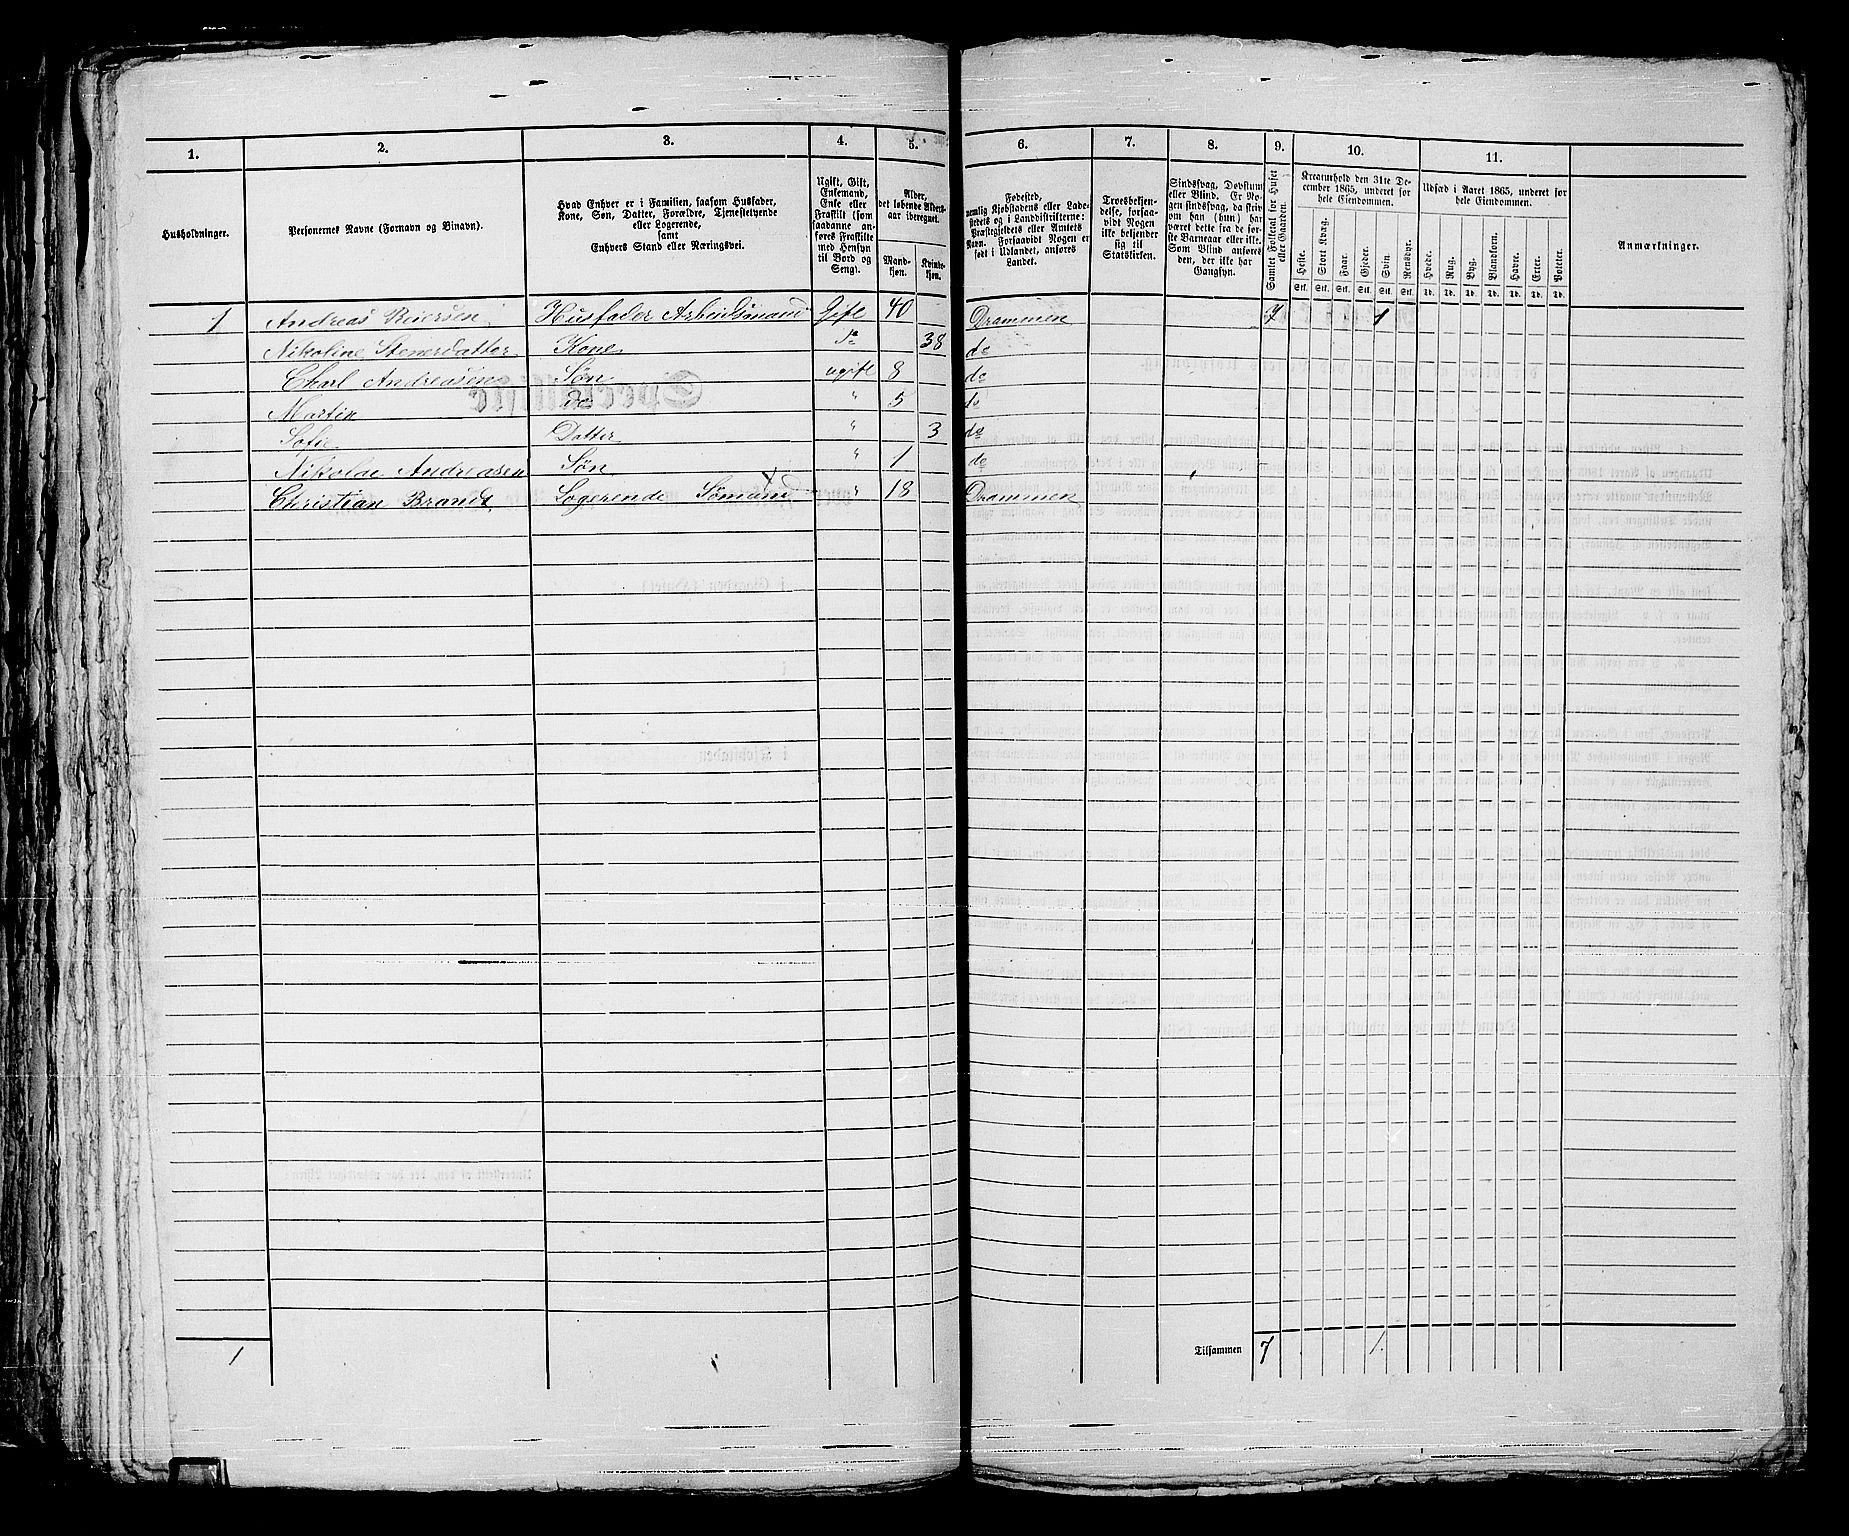 1. 2. 3. 4. 5. 6. 7. 8. 9. 10. 11.
Husholdninger.
Personernes Navne (Fornavn og Binavn).
Hvad Enhver er i Familien, saasom Husfader,
Kone, Søn, Datter, Forældre, Tjenestetyende
eller Logerende,
samt
Enhvers Stand eller Næringsvei.
Ugift, Gift,
Enkemand,
Enke eller
Fraskilt (som
saadanne an-
føres Fraskilte
med Hensyn
til Bord og
Seng).
Alder,
det løbende Alders-
aar iberegnet.
Mand-
kjøn.
Kvinde-
kjøn.
Fødested,
nemlig Kjøbstadens eller Lade-
stedets og i Landdistrikterne:
Præstegjeldets eller Amtets
Navn. Forsaavidt Nogen er
født i Udlandet, anføres
Landet.
Troesbekjen-
delse, forsaa-
vidt Nogen
ikke bekjender
sig til
Statskirken.
Sindssvag, Døvstum
eller Blind. (Er No-
gen sindssvag, da skriv
om han (hun) har
været dette fra de før-
ste Barneaar eller ikke.
Som Blind anføres
den, der ikke har
Gangsyn.
Samlet Folketal for Huset
eller Gaarden.
Kreaturhold den 31te De-
cember 1865, underet for
hele Eiendommen.
Heste. Stort Kvæg. Faar. Gjeder. Svin. Rensdyr.
Stk. Stk. Stk. Stk. Stk. Stk.
Udsæd i Aaret 1865, underet for
hele Eiendommen.
Hvede. Rug. Byg. Blandkorn. Havre. Erter. Poteter.
Td. Td. Td. Td. Td. Td. Td.
Anmærkninger.
1 Andreas Reiersen Husfader Arbeidsmand Gift 40 Drammen 7 1
Nikoline Stenersdatter Kone do 38 do
Charl Andreasen Søn ugift 8 do
Martin do " 5 do
Sofie Datter " 3 do
Nikolae Andreasen Søn " 1 do
Christian Brandt Logerende Sømand " 18 Drammen
1 Tilsammen 7 1